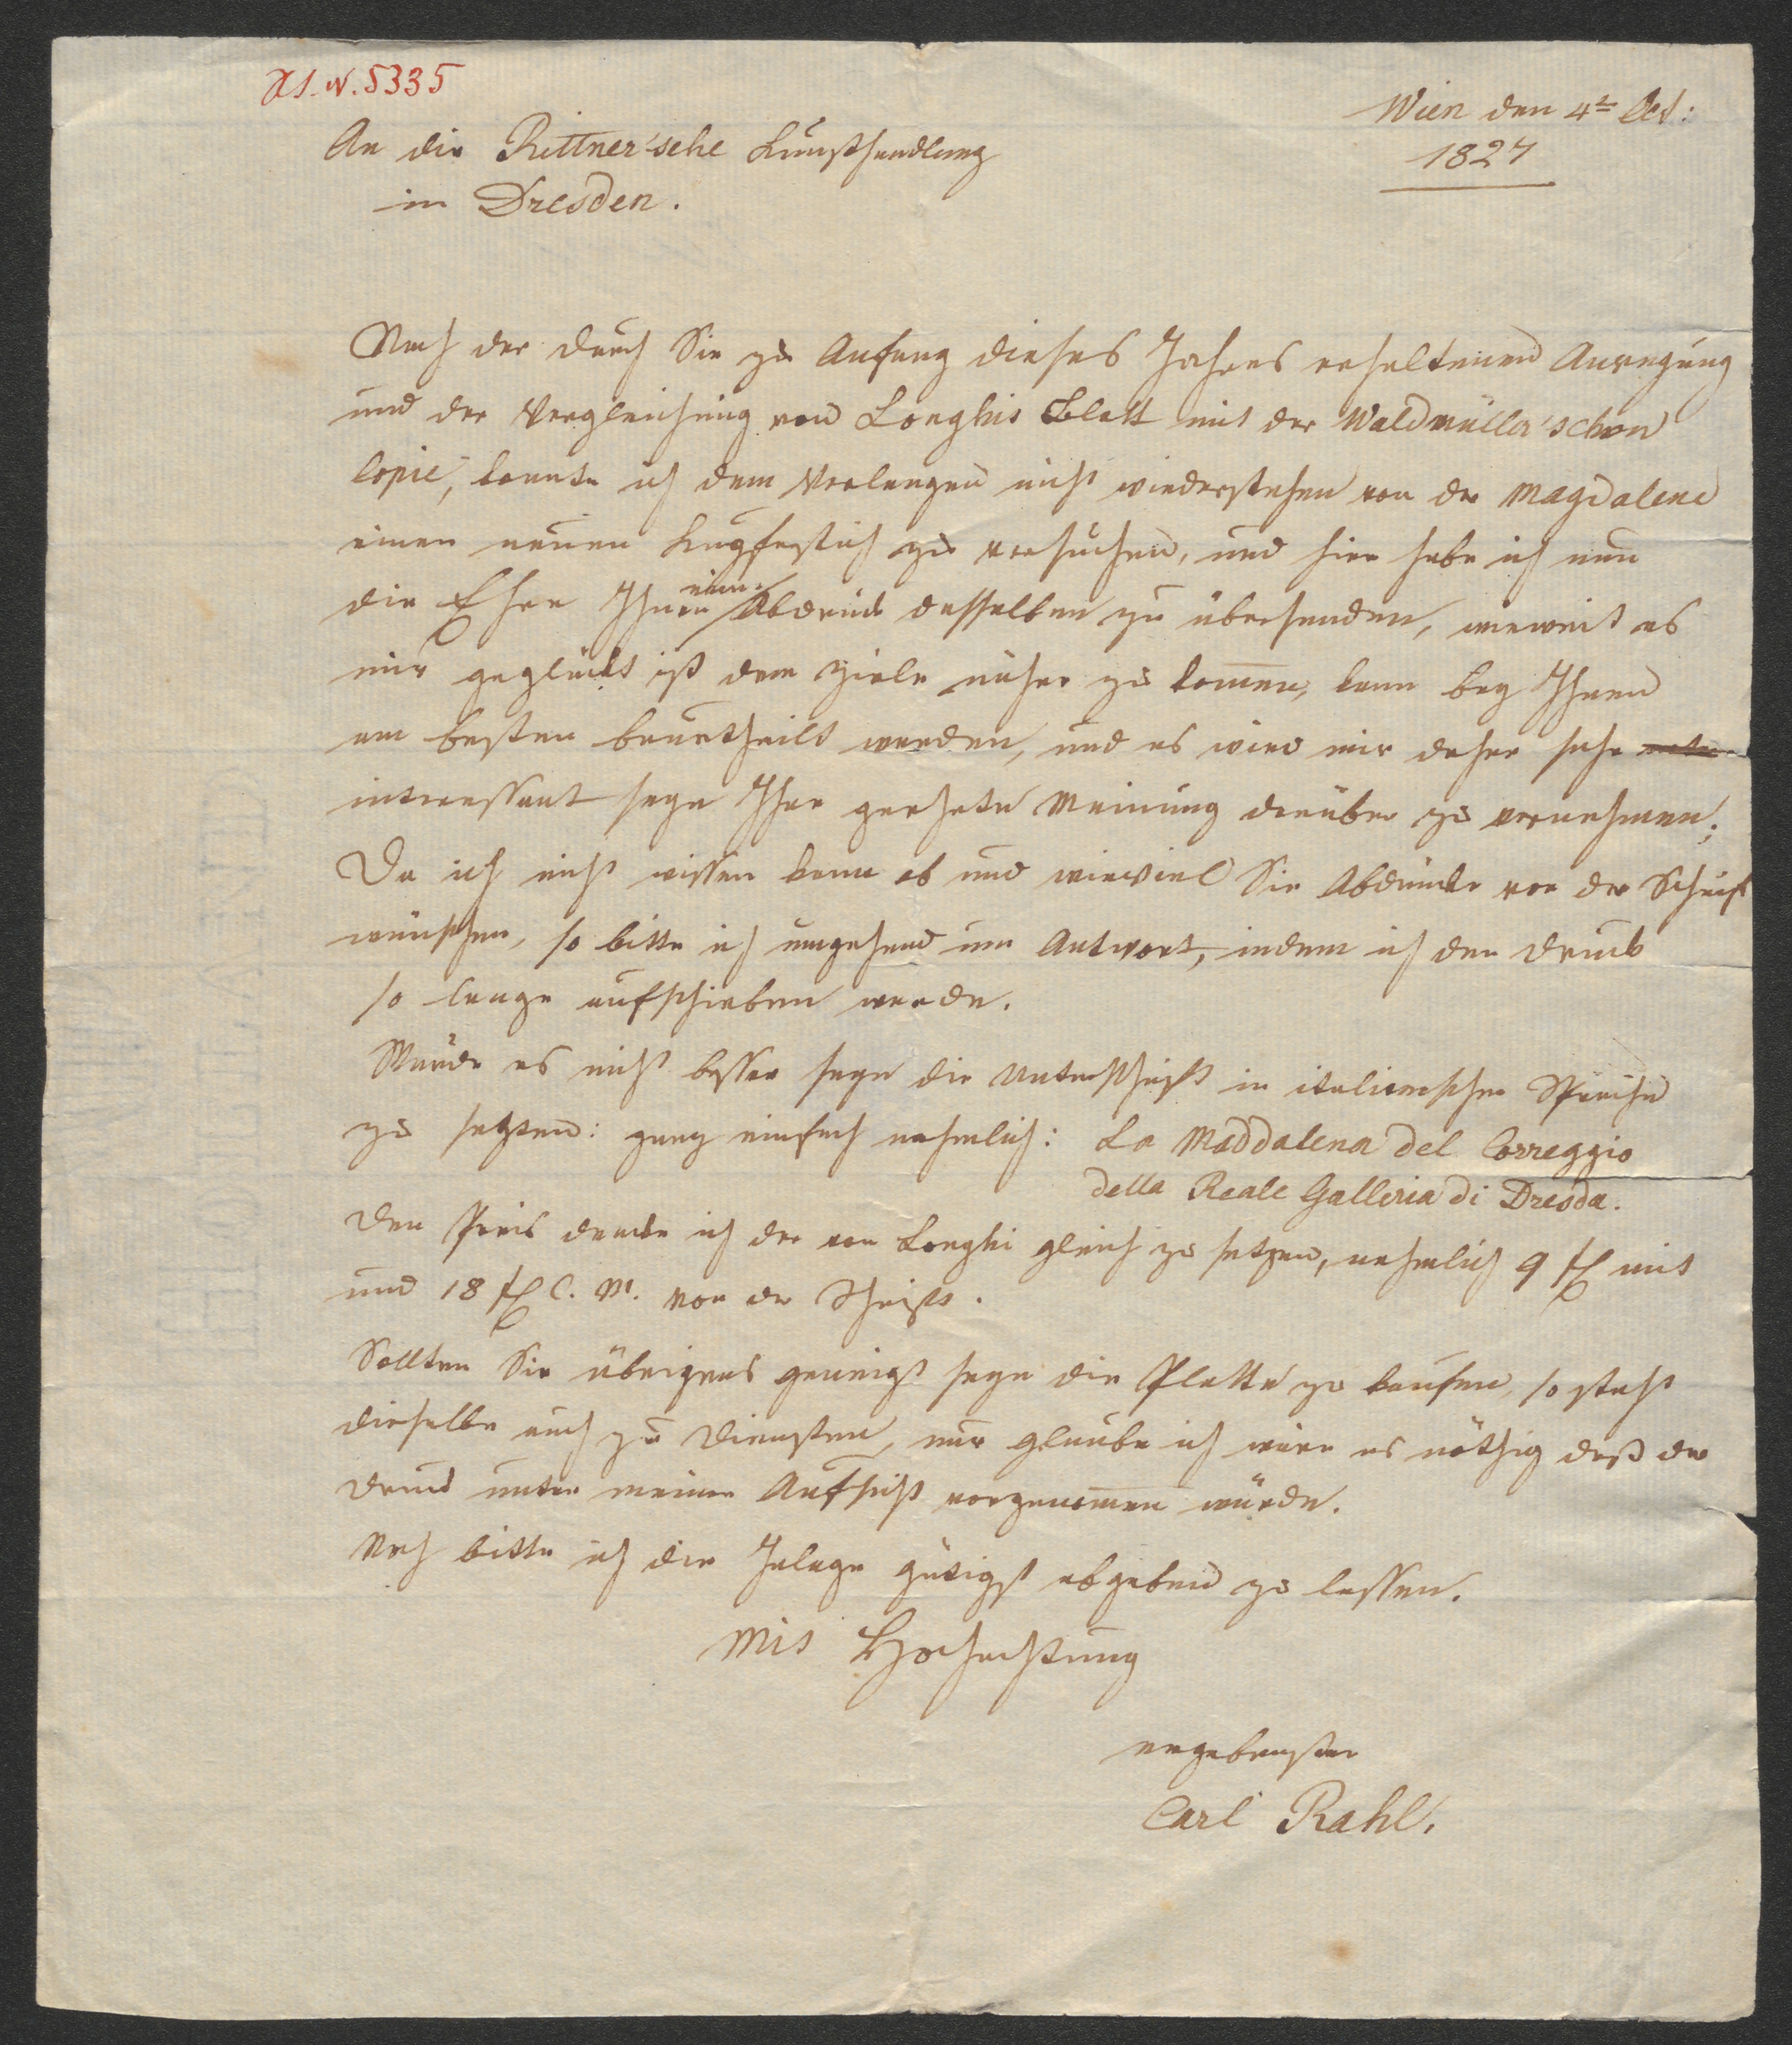 As. N. 5335
Wien den 4t Oct:
1827
An die Rittner'sche Kunsthandlung
in Dresden.
Nach der durch Sie zu Anfang dieses Jahres erhaltenen Anregung
und der Vergleichung von Longhis Blatt mit der Waldmüller'schen
Copie, konnte ich dem Verlangen nicht wiederstehen von der Magdalene
einen neuen Kupferstich zu versuchen, und hier habe ich nun
die Ehre Ihnen einen Abdruck desselben zu übersenden, wieweit es
mir geglückt ist dem Ziele näher zu kommen, kann bey Ihnen
am besten beurtheilt werden, und es wird mir daher sehr
interessant seyn Ihre geehrte Meinung darüber zu vernehmen;
Da ich nicht wissen kann ob und wieviel Sie Abdrücke vor der Schrift
wünschen, so bitte ich umgehend um Antwort, indem ich den Druck
so lange aufschieben werde.
Würde es nicht besser seyn die Unterschrift in italienischer Sprache
zu setzen: ganz einfach nehmlich: La Maddalena del Correggio
della Reale Galleria di Dresda.
Den Preis denke ich der von Longhi gleich zu setzen, nehmlich 9 fl mit
und 18 fl C. M. vor der Schrift.
Sollten Sie übrigens geneigt seyn die Platte zu kaufen, so steht
dieselbe auch zu Diensten, nur glaube ich wäre es nöthig daß der
Druck unter meiner Aufsicht vorgenommen würde.
Noch bitte ich die Inlage gütigst abgeben zu lassen.
Mit Hochachtung
ergebenster
Carl Rahl.